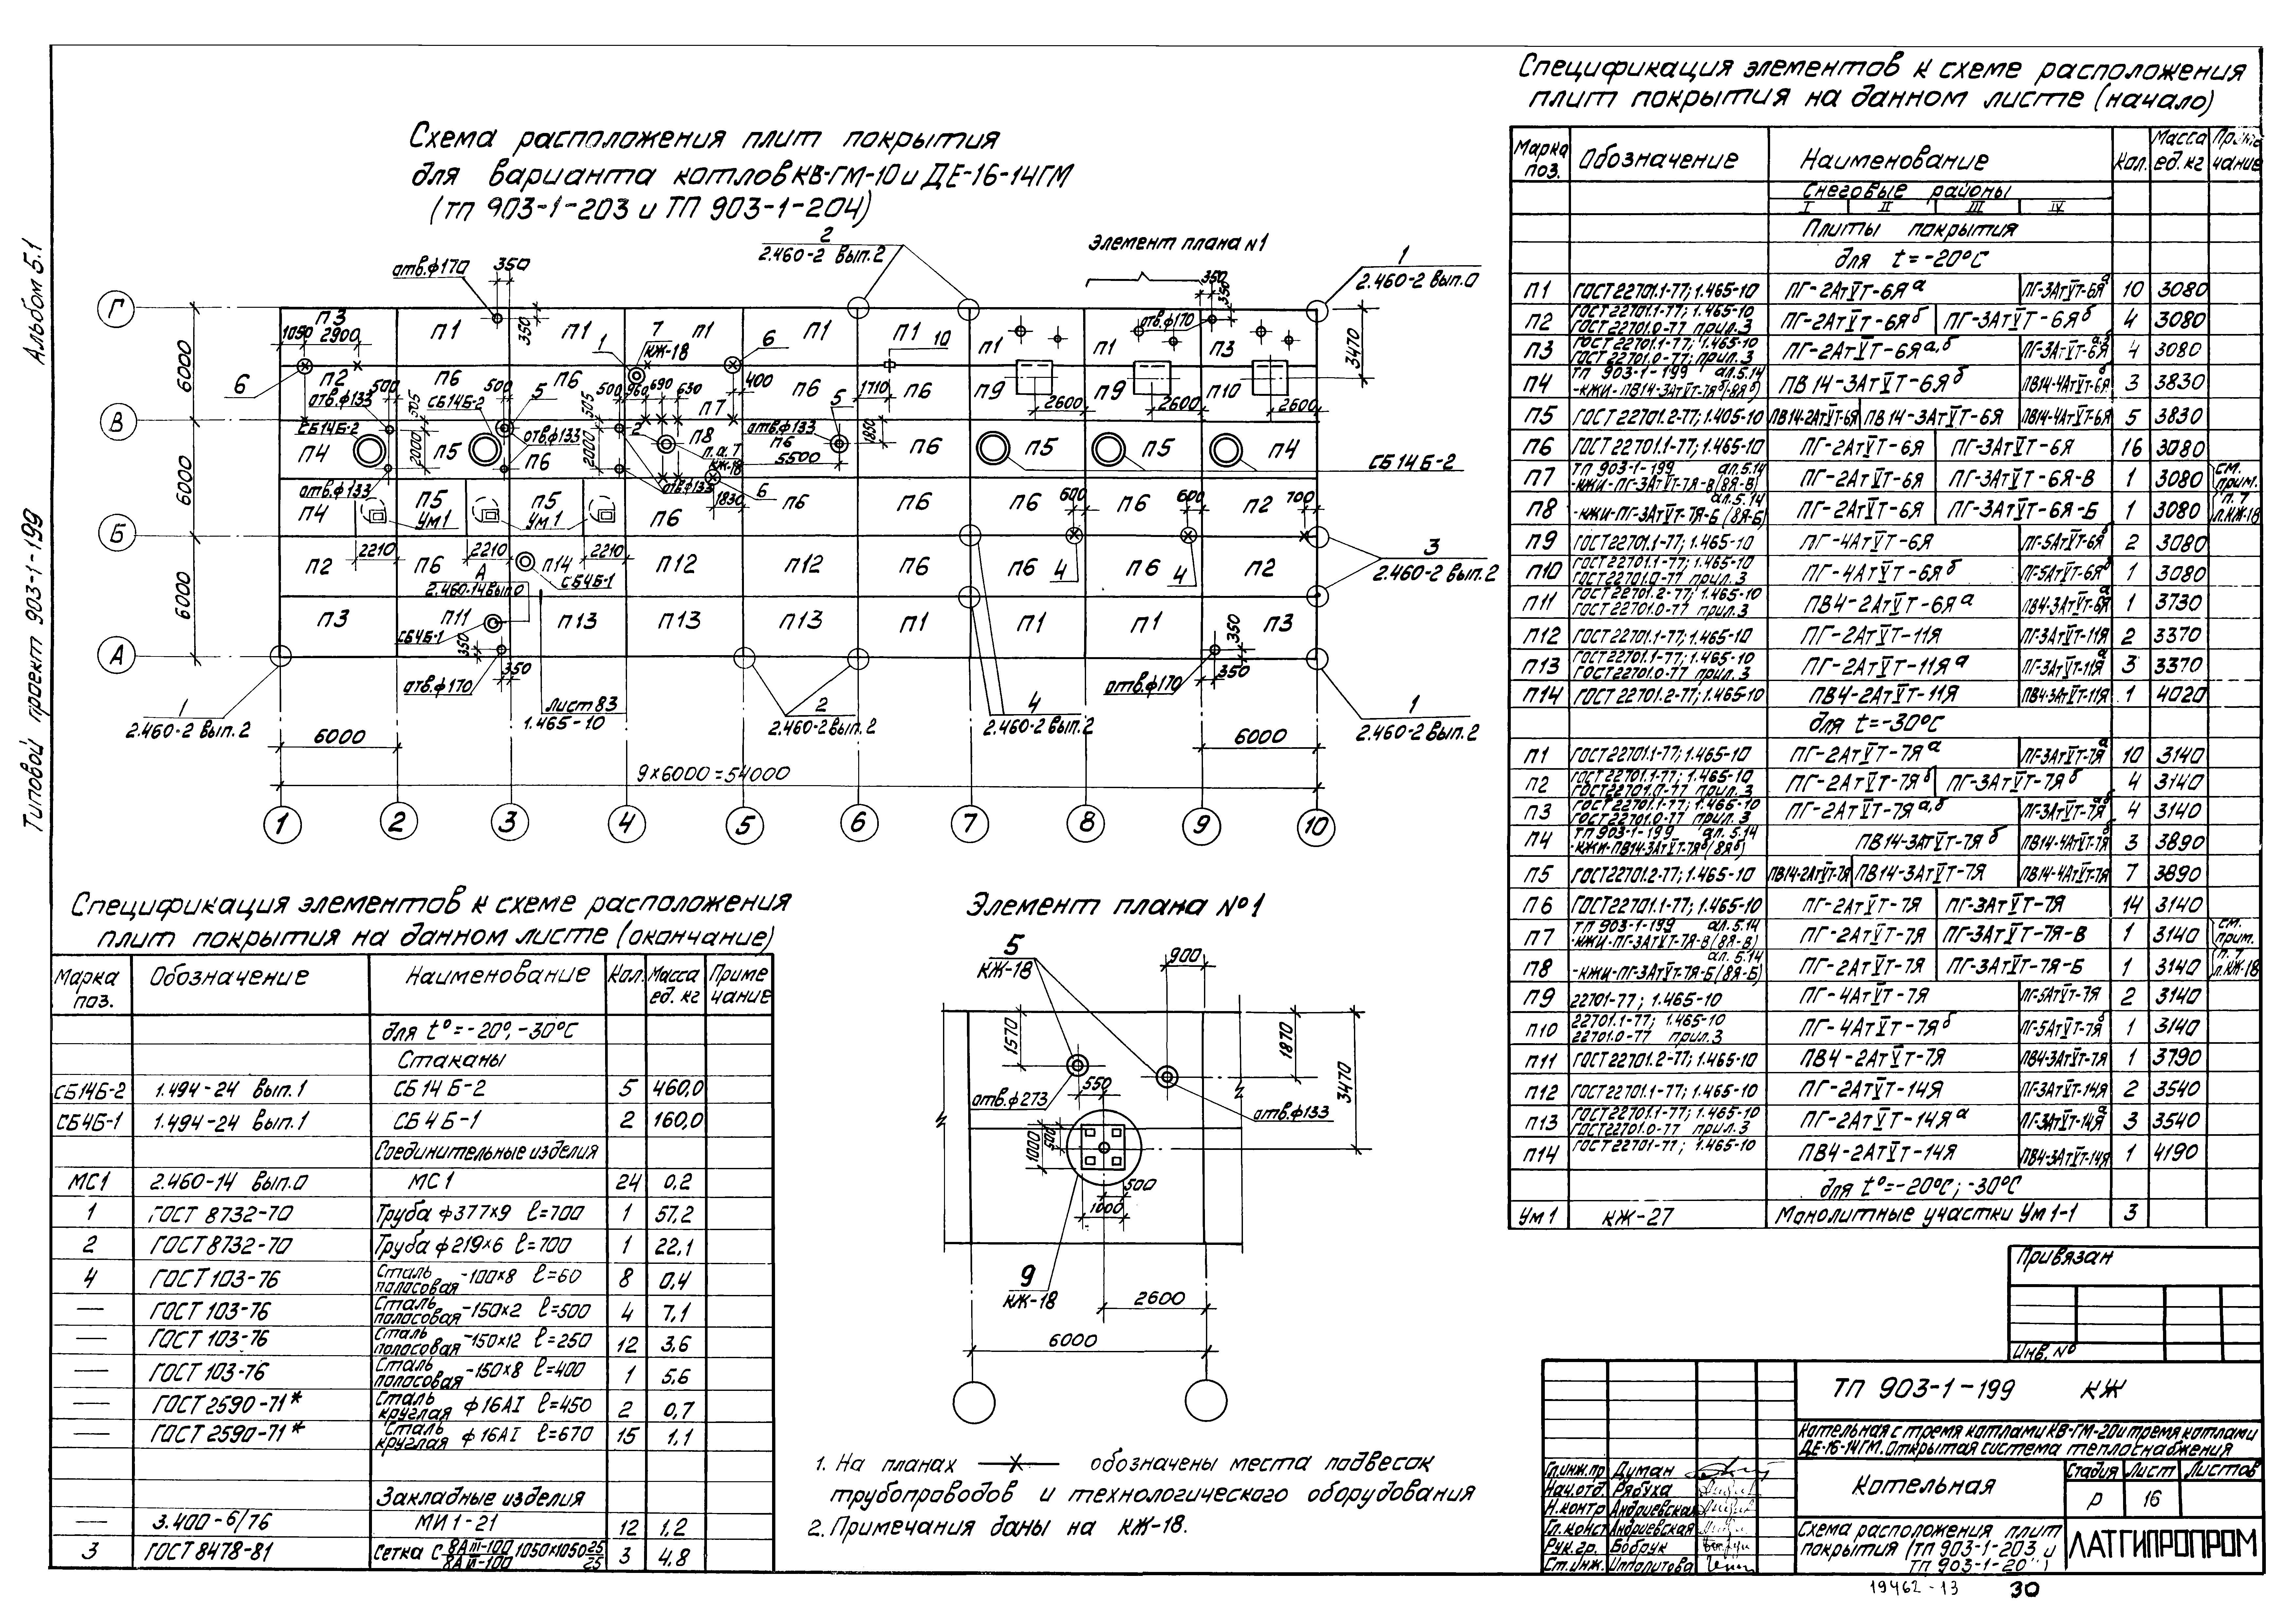 Альбом 5.1
Типовой проект 903-1-199
Схема расположения плит покрытия
для варианта котлов КВ-ГМ-10 и ДЕ-16-14ГМ
(ТП 903-1-203 и ТП 903-1-204)
2
2.460-2 вып.2
Элемент плана N1
1
2.460-2 вып.0
отв.ф170
350
350
350
350
Г
П3
П1
П1
7
П1
П1
П1
П1
П1
П3
1050
2900
1
КЖ-18
6
10
отв.ф170
3470
6000
6
П2
П6
П6
П7
П6
П6
П9
П9
П10
500
отв.ф133
505
500
СБ14Б-2
5
500
960
690
630
400
1710
5
2600
2600
2600
В
СБ14Б-2
П4
2000
П5
отв.ф133
П6
505
2000
2
П8
п.а.7
КЖ-18
отв.ф133
П6
5500
1850
П6
П5
П5
П4
СБ14Б-2
6000
отв.ф133
отв.ф133
6
1830
П4
П5
Ум1
П5
Ум1
П6
П6
П6
П6
600
П6
600
П2
700
Б
2210
2210
2210
П2
П6
А
2.460-14 вып.0
П14
СБ4Б-1
П12
П12
П6
П6
4
П6
4
П2
3
2.460-2 вып.2
6000
П3
П11
СБ4Б-1
П13
П13
П13
П1
П1
П1
П3
350
350
350
350
А
отв.ф170
отв.ф170
1
2.460-2 вып.2
лист 83
1.465-10
2
2.460-2 вып.2
4
2.460-2 вып.2
1
2.460-2 вып.2
6000
6000
9×6000=54000
1 2 3 4 5 6 7 8 9 10
Спецификация элементов к схеме расположения
плит покрытия на данном листе (начало)
Марка поз. Обозначение Наименование Кол. Масса ед. кг Приме чание
Снеговые районы
I II III IV
Плиты покрытия
для t=-20°С
П1 ГОСТ 22701.1-77; 1.465-10 ПГ-2АтVТ-6Яа ПГ-3АтVТ-6Яа 10 3080
П2 ГОСТ 22701.1-77; 1.465-10 ГОСТ 22701.0-77 прил.3 ПГ-2АтVТ-6Яб ПГ-3АтVТ-6Яб 4 3080
П3 ГОСТ 22701.1-77; 1.465-10 ГОСТ 22701.0-77; прил.3 ПГ-2АтVТ-6Яа,б ПГ-3АтVТ-6Яа,б 4 3080
П4 ТП 903-1-199 ал.5.14 -КЖИ-ПВ14-3АтVТ-7Яб(8Яб) ПВ14-3АтVТ-6Яб ПВ14-4АтVТ-6Яб 3 3830
П5 ГОСТ 22701.2-77; 1.405-10 ПВ14-2АтVТ-6Я ПВ14-3АтVТ-6Я ПВ14-4АтVТ-6Я 5 3830
П6 ГОСТ 22701.1-77; 1.465-10 ПГ-2АтVТ-6Я ПГ-3АтVТ-6Я 16 3080
П7 ТП 903-1-199 ал.5.14 -КЖИ-ПГ-3АтVТ-7Я-В(8Я-В) ПГ-2АтVТ-6Я ПГ-3АтVТ-6Я-В 1 3080 см. прим.
П8 ал.5.14 -КЖИ-ПГ-3АтVТ-7Я-Б(8Я-Б) ПГ-2АтVТ-6Я ПГ-3АтVТ-6Я-Б 1 3080 п.7 л.КЖ-18
П9 ГОСТ 22701.1-77; 1.465-10 ПГ-4АтVТ-6Я ПГ-5АтVТ-6Я 2 3080
П10 ГОСТ 22701.1-77; 1.465-10 ГОСТ 22701.0-77 прил.3 ПГ-4АтVТ-6Яб ПГ-5АтVТ-6Яб 1 3080
П11 ГОСТ 22701.2-77; 1.465-10 ГОСТ 22701.0-77 прил.3 ПВ4-2АтVТ-6Яа ПВ4-3АтVТ-6Яа 1 3730
П12 ГОСТ 22701.1-77; 1.465-10 ПГ-2АтVТ-11Я ПГ-3АтVТ-11Я 2 3370
П13 ГОСТ 22701.1-77; 1.465-10 ГОСТ 22701.0-77 прил.3 ПГ-2АтVТ-11Яа ПГ-3АтVТ-11Яа 3 3370
П14 ГОСТ 22701.2-77; 1.465-10 ПВ4-2АтVТ-11Я ПВ4-3АтVТ-11Я 1 4020
для t=-30°С
П1 ГОСТ 22701.1-77; 1.465-10 ПГ-2АтVТ-7Яа ПГ-3АтVТ-7Яа 10 3140
П2 ГОСТ 22701.1-77; 1.465-10 ГОСТ 22701.0-77 прил.3 ПГ-2АтVТ-7Яб ПГ-3АтVТ-7Яб 4 3140
П3 ГОСТ 22701.1-77; 1.465-10 ГОСТ 22701.0-77 прил.3 ПГ-2АтVТ-7Яа,б ПГ-3АтVТ-7Яа,б 4 3140
П4 ТП 903-1-199 ал.5.14 -КЖИ-ПВ14-3АтVТ-7Яб(8Яб) ПВ14-3АтVТ-7Яб ПВ14-4АтVТ-7Яб 3 3890
П5 ГОСТ 22701.2-77; 1.465-10 ПВ14-2АтVТ-7Я ПВ14-3АтVТ-7Я ПВ14-4АтVТ-7Я 7 3890
П6 ГОСТ 22701.1-77; 1.465-10 ПГ-2АтVТ-7Я ПГ-3АтVТ-7Я 14 3140
П7 ТП 903-1-199 ал.5.14 -КЖИ-ПГ-3АтVТ-7Я-В(8Я-В) ПГ-2АтVТ-7Я ПГ-3АтVТ-7Я-В 1 3140 см. прим.
П8 ал.5.14 -КЖИ-ПГ-3АтVТ-7Я-Б(8Я-Б) ПГ-2АтVТ-7Я ПГ-3АтVТ-7Я-Б 1 3140 п.7 л.КЖ-18
П9 22701-77; 1.465-10 ПГ-4АтVТ-7Я ПГ-5АтVТ-7Я 2 3140
П10 22701.1-77; 1.465-10 22701.0-77 прил.3 ПГ-4АтVТ-7Яб ПГ-5АтVТ-7Яб 1 3140
П11 ГОСТ 22701.2-77; 1.465-10 ПВ4-2АтVТ-7Я ПВ4-3АтVТ-7Я 1 3790
П12 ГОСТ 22701.1-77; 1.465-10 ПГ-2АтVТ-14Я ПГ-3АтVТ-14Я 2 3540
П13 ГОСТ 22701.1-77; 1.465-10 ГОСТ 22701.0-77 прил.3 ПГ-2АтVТ-14Яа ПГ-3АтVТ-14Яа 3 3540
П14 ГОСТ 22701-77; 1.465-10 ПВ4-2АтVТ-14Я ПВ4-3АтVТ-14Я 1 4190
для t°=-20°С; -30°С
Ум1 КЖ-27 Монолитные участки Ум1-1 3
Спецификация элементов к схеме расположения
плит покрытия на данном листе (окончание)
Марка поз. Обозначение Наименование Кол. Масса ед. кг Приме чание
для t°=-20°,-30°С
Стаканы
СБ14Б-2 1.494-24 вып.1 СБ14Б-2 5 460,0
СБ4Б-1 1.494-24 вып.1 СБ4Б-1 2 160,0
Соединительные изделия
МС1 2.460-14 вып.0 МС1 24 0,2
1 ГОСТ 8732-70 Труба ф377×9 ℓ=700 1 57,2
2 ГОСТ 8732-70 Труба ф219×6 ℓ=700 1 22,1
4 ГОСТ 103-76 Сталь полосовая -100×8 ℓ=60 8 0,4
— ГОСТ 103-76 Сталь полосовая -150×2 ℓ=500 4 7,1
— ГОСТ 103-76 Сталь полосовая -150×12 ℓ=250 12 3,6
— ГОСТ 103-76 Сталь полосовая -150×8 ℓ=400 1 5,6
— ГОСТ 2590-71* Сталь круглая ф16АI ℓ=450 2 0,7
— ГОСТ 2590-71* Сталь круглая ф16АI ℓ=670 15 1,1
Закладные изделия
— 3.400-6/76 МИ1-21 12 1,2
3 ГОСТ 8478-81 Сетка С 8АIII-100/8АIII-100 1050×1050 25/25 3 4,8
Элемент плана №1
5
КЖ-18
900
1570
1870
3470
550
отв.ф273
отв.ф133
1000
500
500
1000
9
КЖ-18
2600
6000
1. На планах —×— обозначены места подвесок
трубопроводов и технологического оборудования
2. Примечания даны на КЖ-18.
Привязан
Инв. №
ТП 903-1-199 КЖ
Котельная с тремя котлами КВ-ГМ-20 и тремя котлами
ДЕ-16-14ГМ. Открытая система теплоснабжения
Гл.инж.пр Думан
Нач.отд. Рябуха
Н.контр Андриевская
Гл.конст Андриевская
Рук.гр. Бобрук
Ст.инж. Ипполитова
Котельная
Стадия Лист Листов
Р 16
Схема расположения плит
покрытия (ТП 903-1-203 и
ТП 903-1-20 )
ЛАТГИПРОПРОМ
19462-13 30